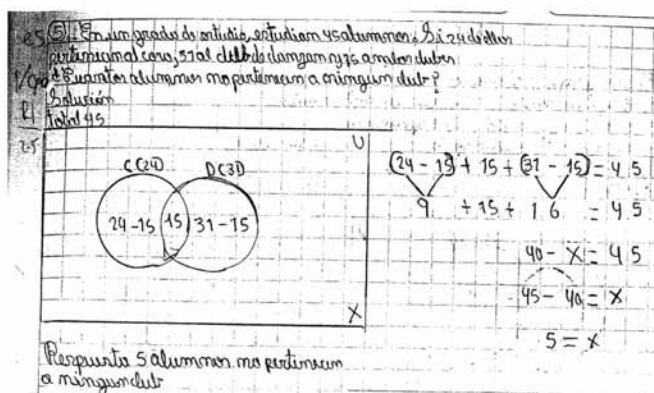 5. En un grado de estudio, estudian 45 alumnos. Si 24 de ellos
pertenecen al coro, 31 al club de danzan y 15 a ambos clubes
¿Cuantos alumnos no pertenecen a ningun club?
Solución
Total 45
U
C(24) D(31)
24-15 15 31-15
X
(24-15) + 15 + (31-15) = 45
9 + 15 + 16 = 45
40 - X = 45
45 - 40 = X
5 = x
Respuesta 5 alumnos no pertenecen
a ningun club